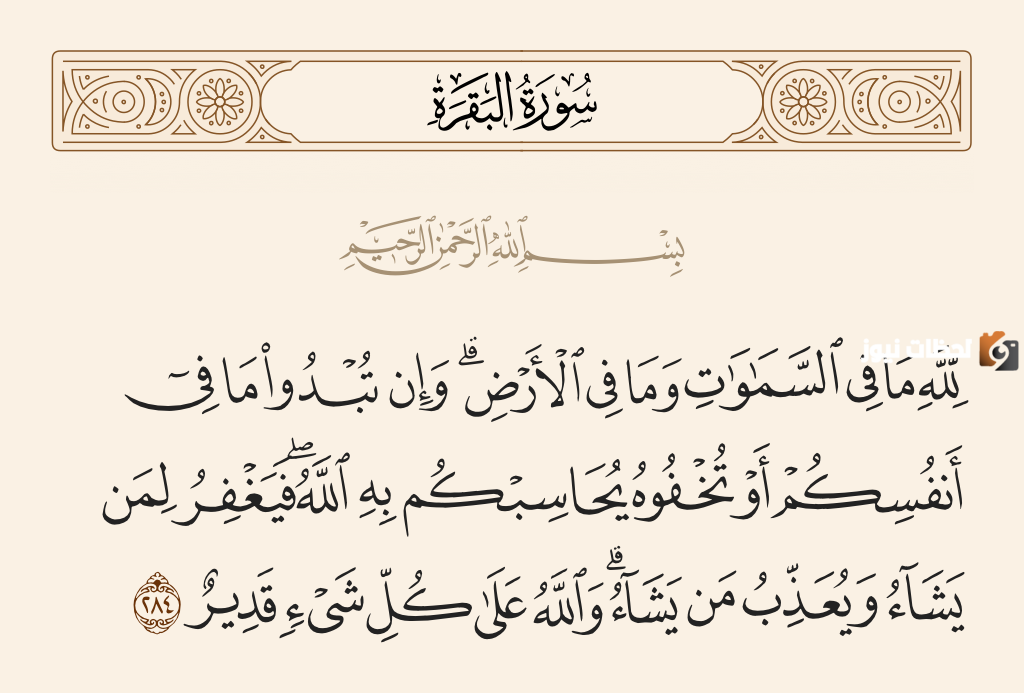 سُورَةُ البَقَرَةِ
بِسْمِ ٱللَّهِ ٱلرَّحْمَٰنِ ٱلرَّحِيمِ
لحظات نيوز
لِلَّهِ مَا فِي ٱلسَّمَٰوَٰتِ وَمَا فِي ٱلْأَرْضِۗ وَإِن تُبْدُوا۟ مَا فِيٓ
أَنفُسِكُمْ أَوْ تُخْفُوهُ يُحَاسِبْكُم بِهِ ٱللَّهُۖ فَيَغْفِرُ لِمَن
يَشَآءُ وَيُعَذِّبُ مَن يَشَآءُۗ وَٱللَّهُ عَلَىٰ كُلِّ شَىْءٍ قَدِيرٌ ٢٨٤